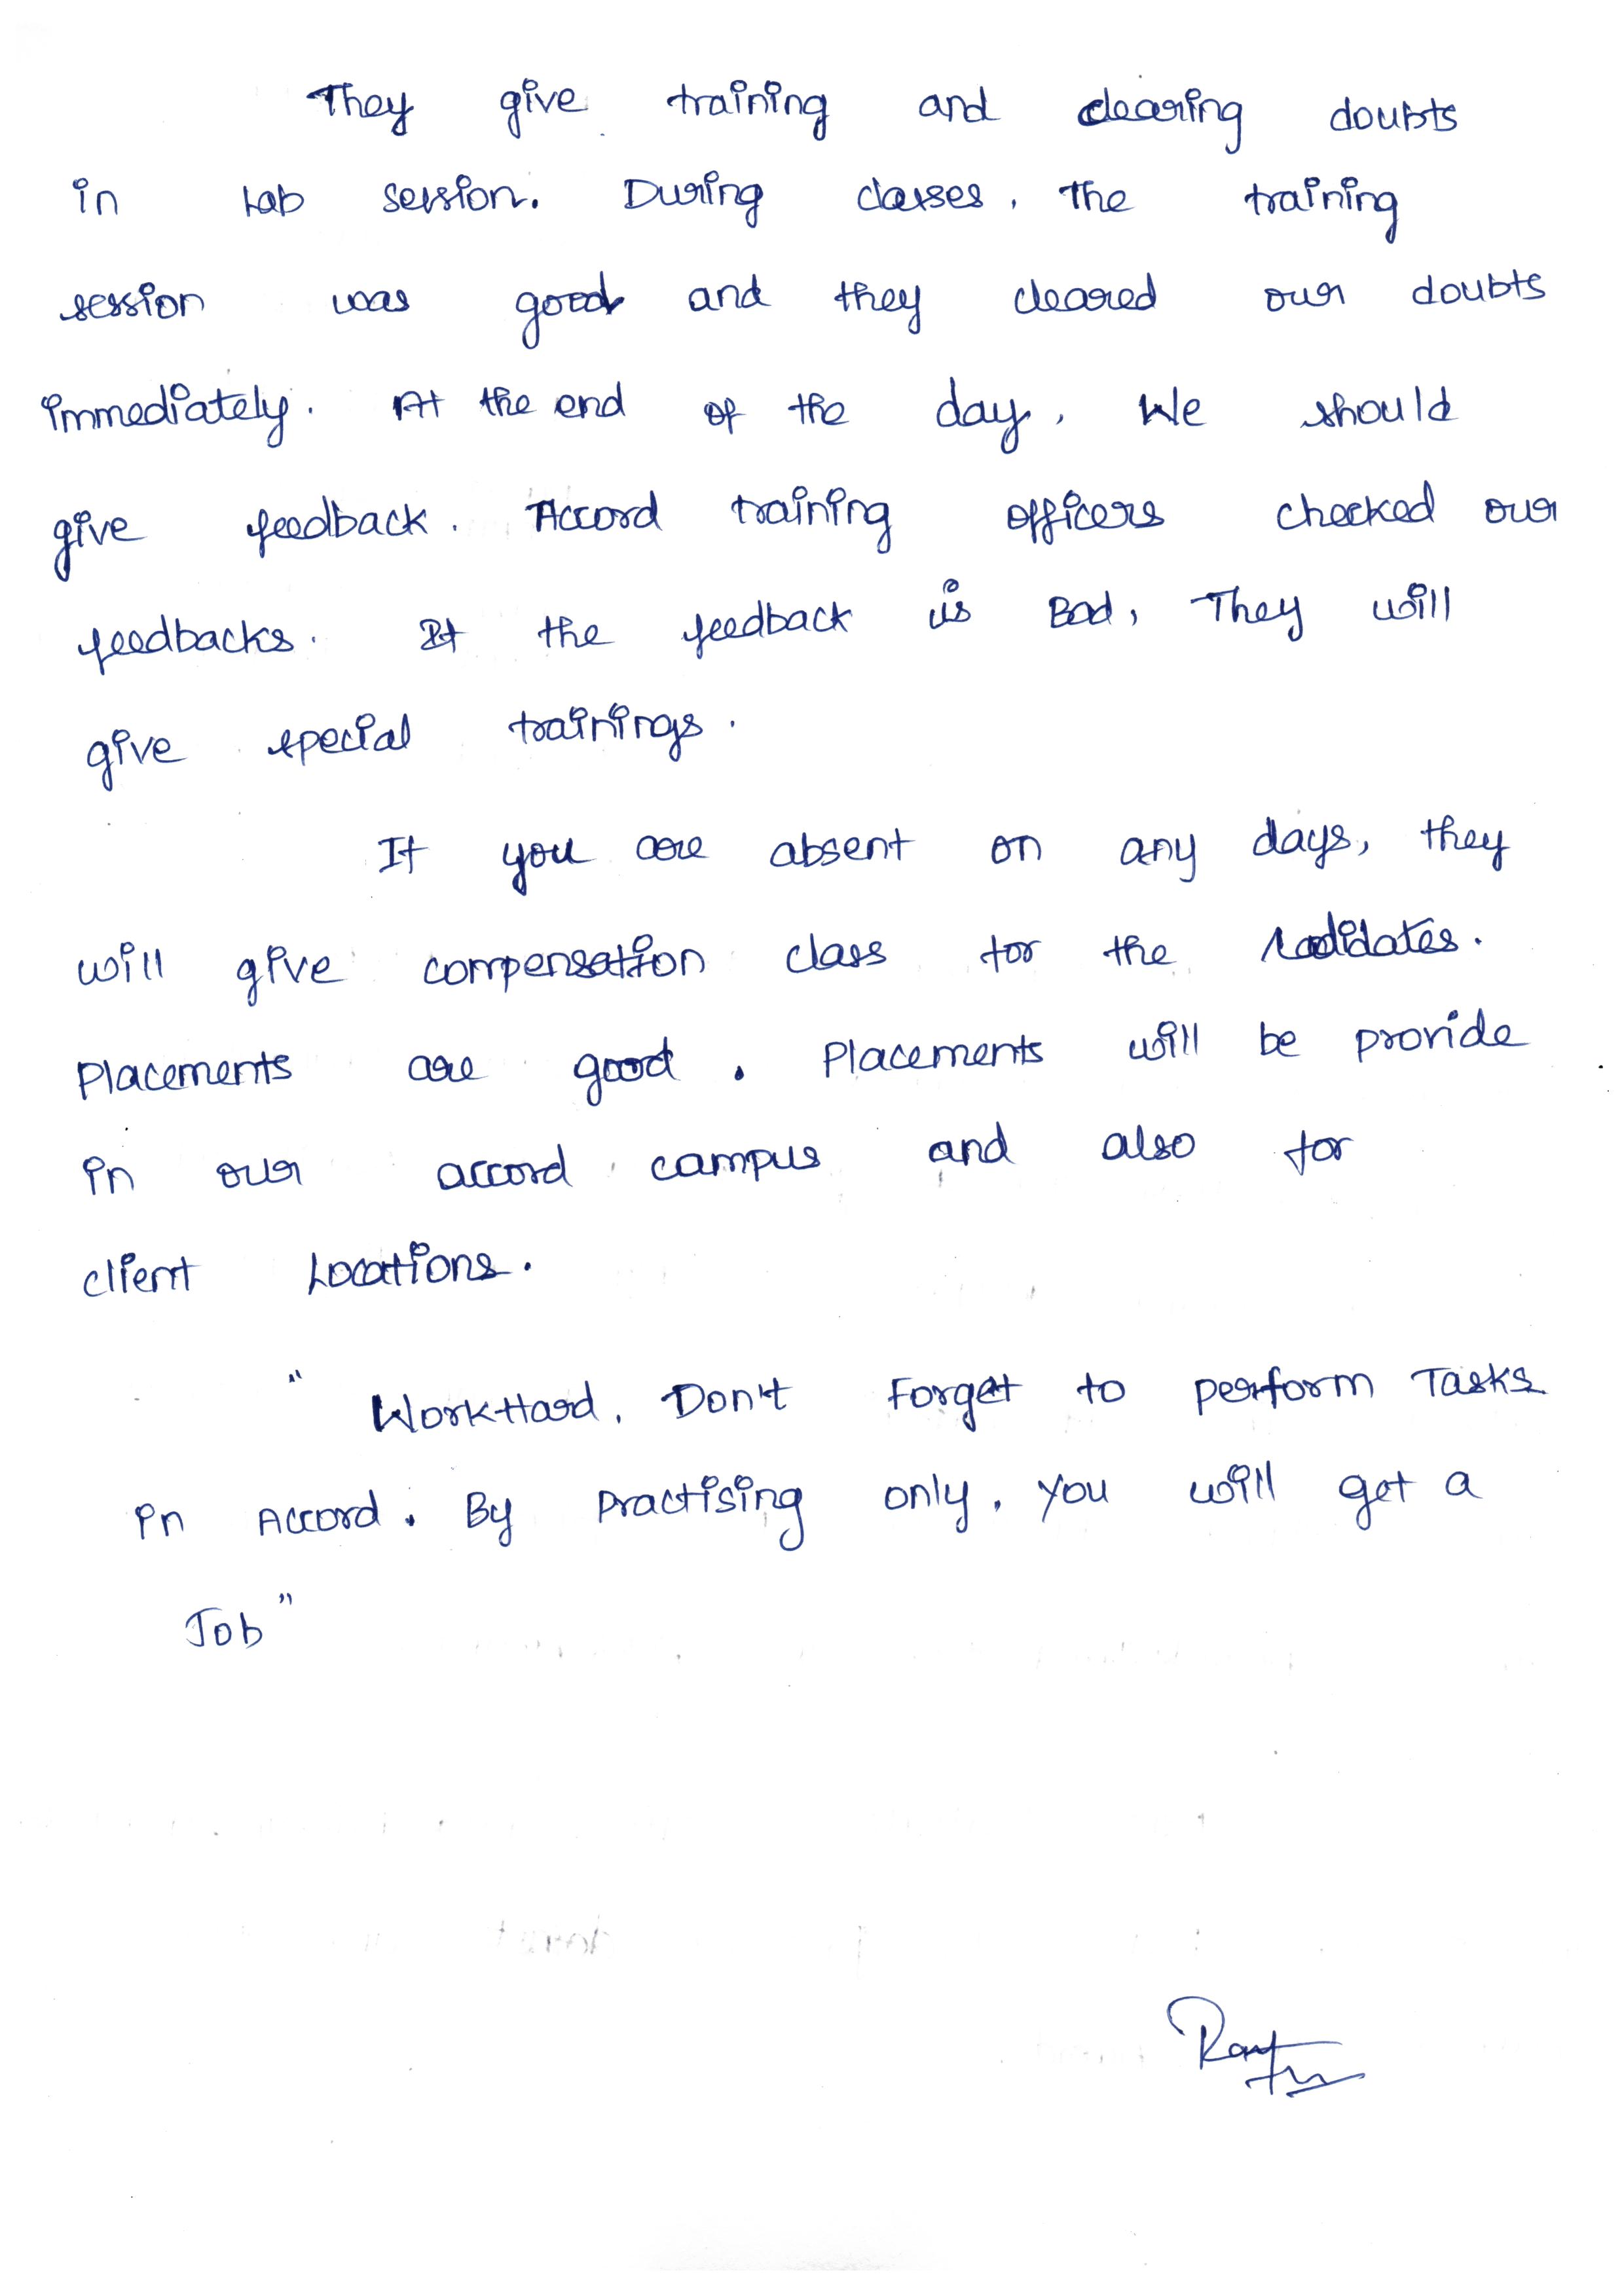 They give training and clearing doubts
in Lab session. During classes, the training
session was good and they cleared our doubts
immediately. At the end of the day, We should
give feedback. Accord training officers checked our
feedbacks. If the feedback is Bad, They will
give special trainings.
If you are absent on any days, they
will give compensation class for the cadidates.
Placements are good. Placements will be provide
in our accord campus and also for
client Locations.
" WorkHard, Don't Forget to perform Tasks
in Accord. By Practising only, you will get a
Job"